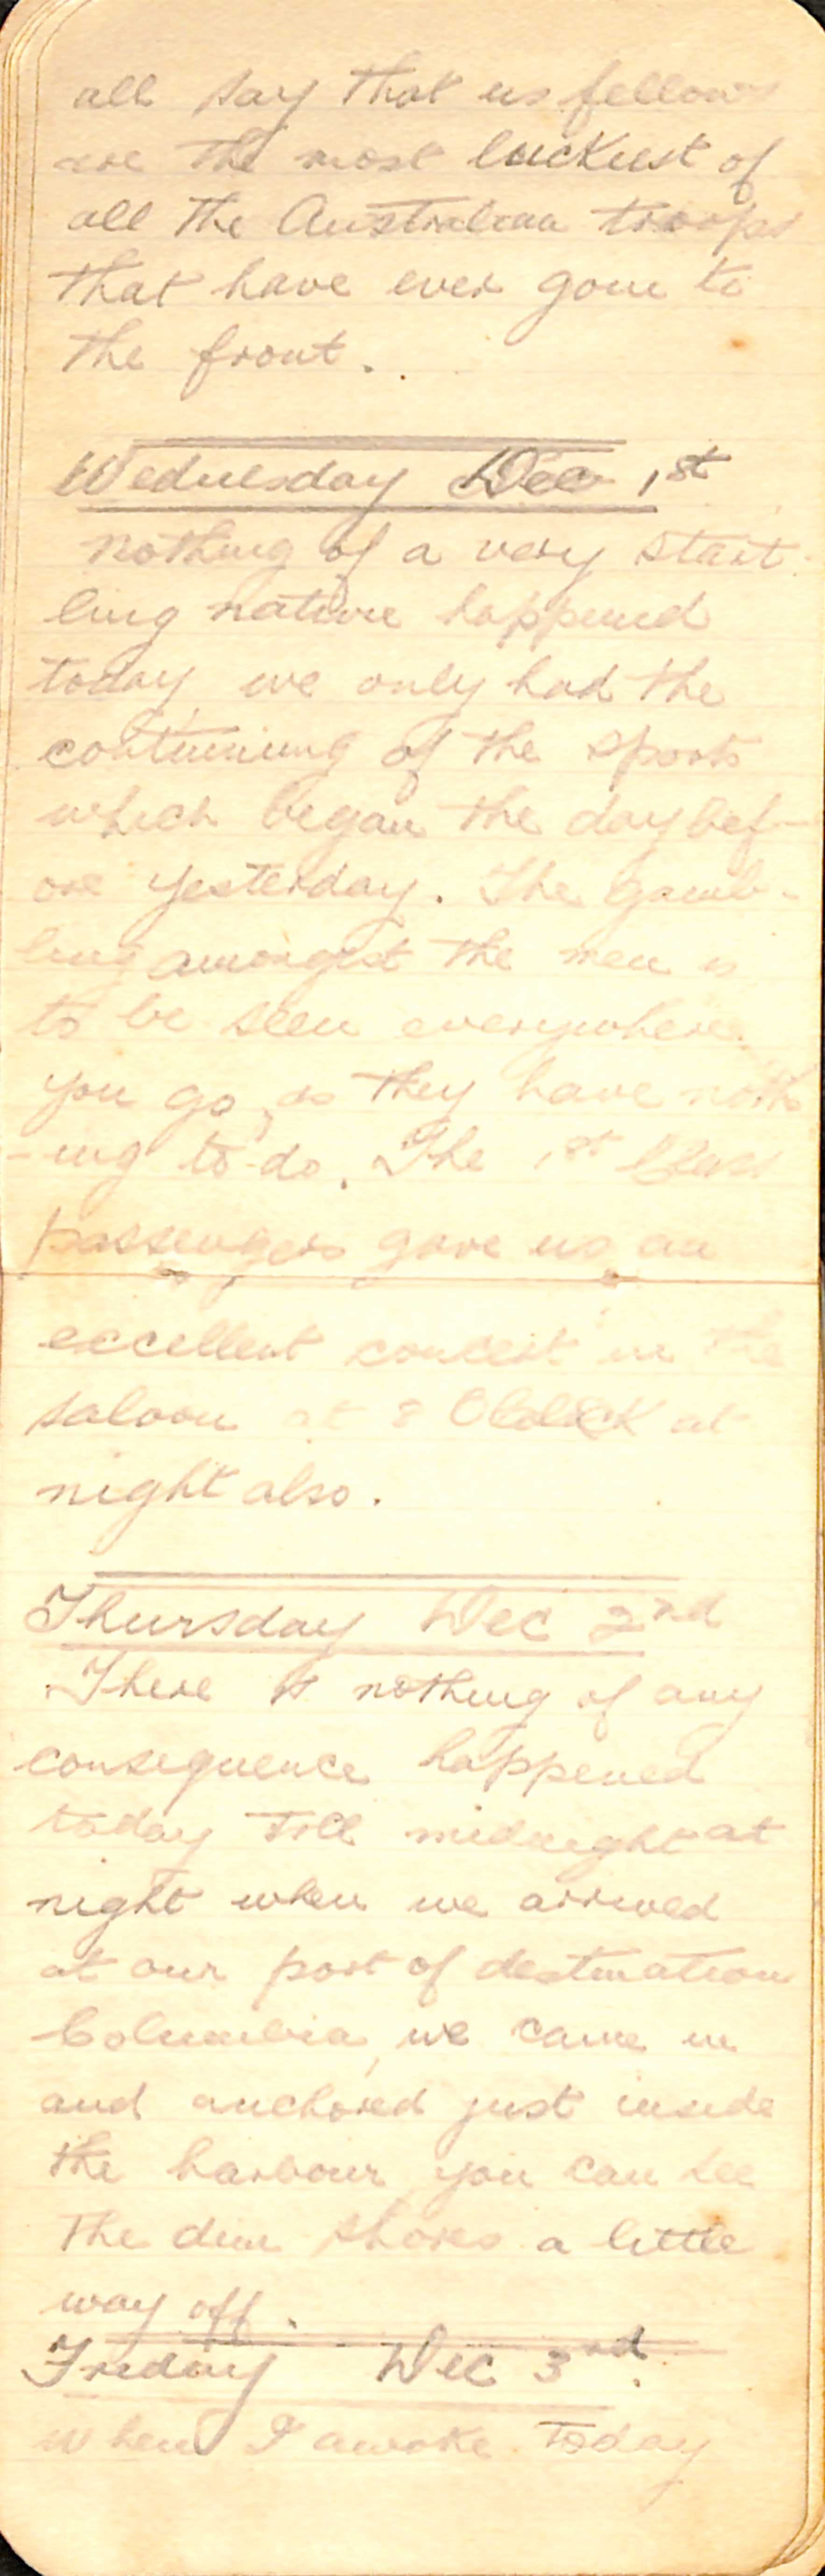 all say that us fellows
are the most luckiest of
all the Australian troops
that have ever gone to
the front.
Wednesday Dec 1st
nothing of a very start
ling nature happened
today we only had the
continuing of the sports
which began the day bef-
ore yesterday. The gamb-
ling amongst the men is
to be seen everywhere
you go, as they have noth
-ing to do. The 1st Class
passengers gave us an
excellent concert in the
saloon at 8 OClock at
night also.
Thursday Dec 2nd
There is nothing of any
consequence happened
today till midnight at
night when we arrived
at our port of destination
Columbia, we came in
and anchored just inside
the harbour you can see
the dim shores a little
way off.
Friday Dec 3rd.
when I awoke today